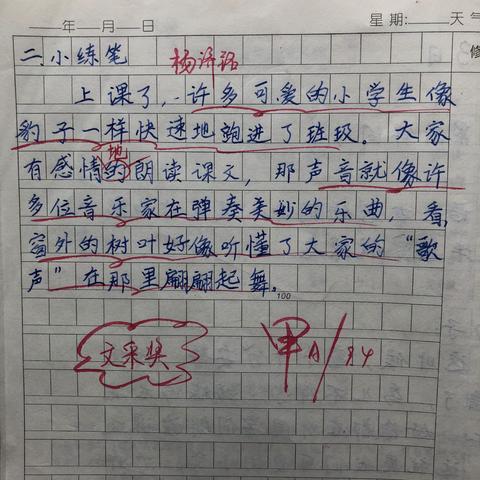 ____年__月__日 星期:____天气
修
二小练笔 杨诗
上课了,许多可爱的小学生像
豹子一样快速地跑进了班级。大家
有感情的朗读课文,那声音就像许
地
多位音乐家在弹奏美妙的乐曲,看,
窗外的树叶好像听懂了大家的“歌
声”在那里翩翩起舞。
100
文采奖
甲A/94